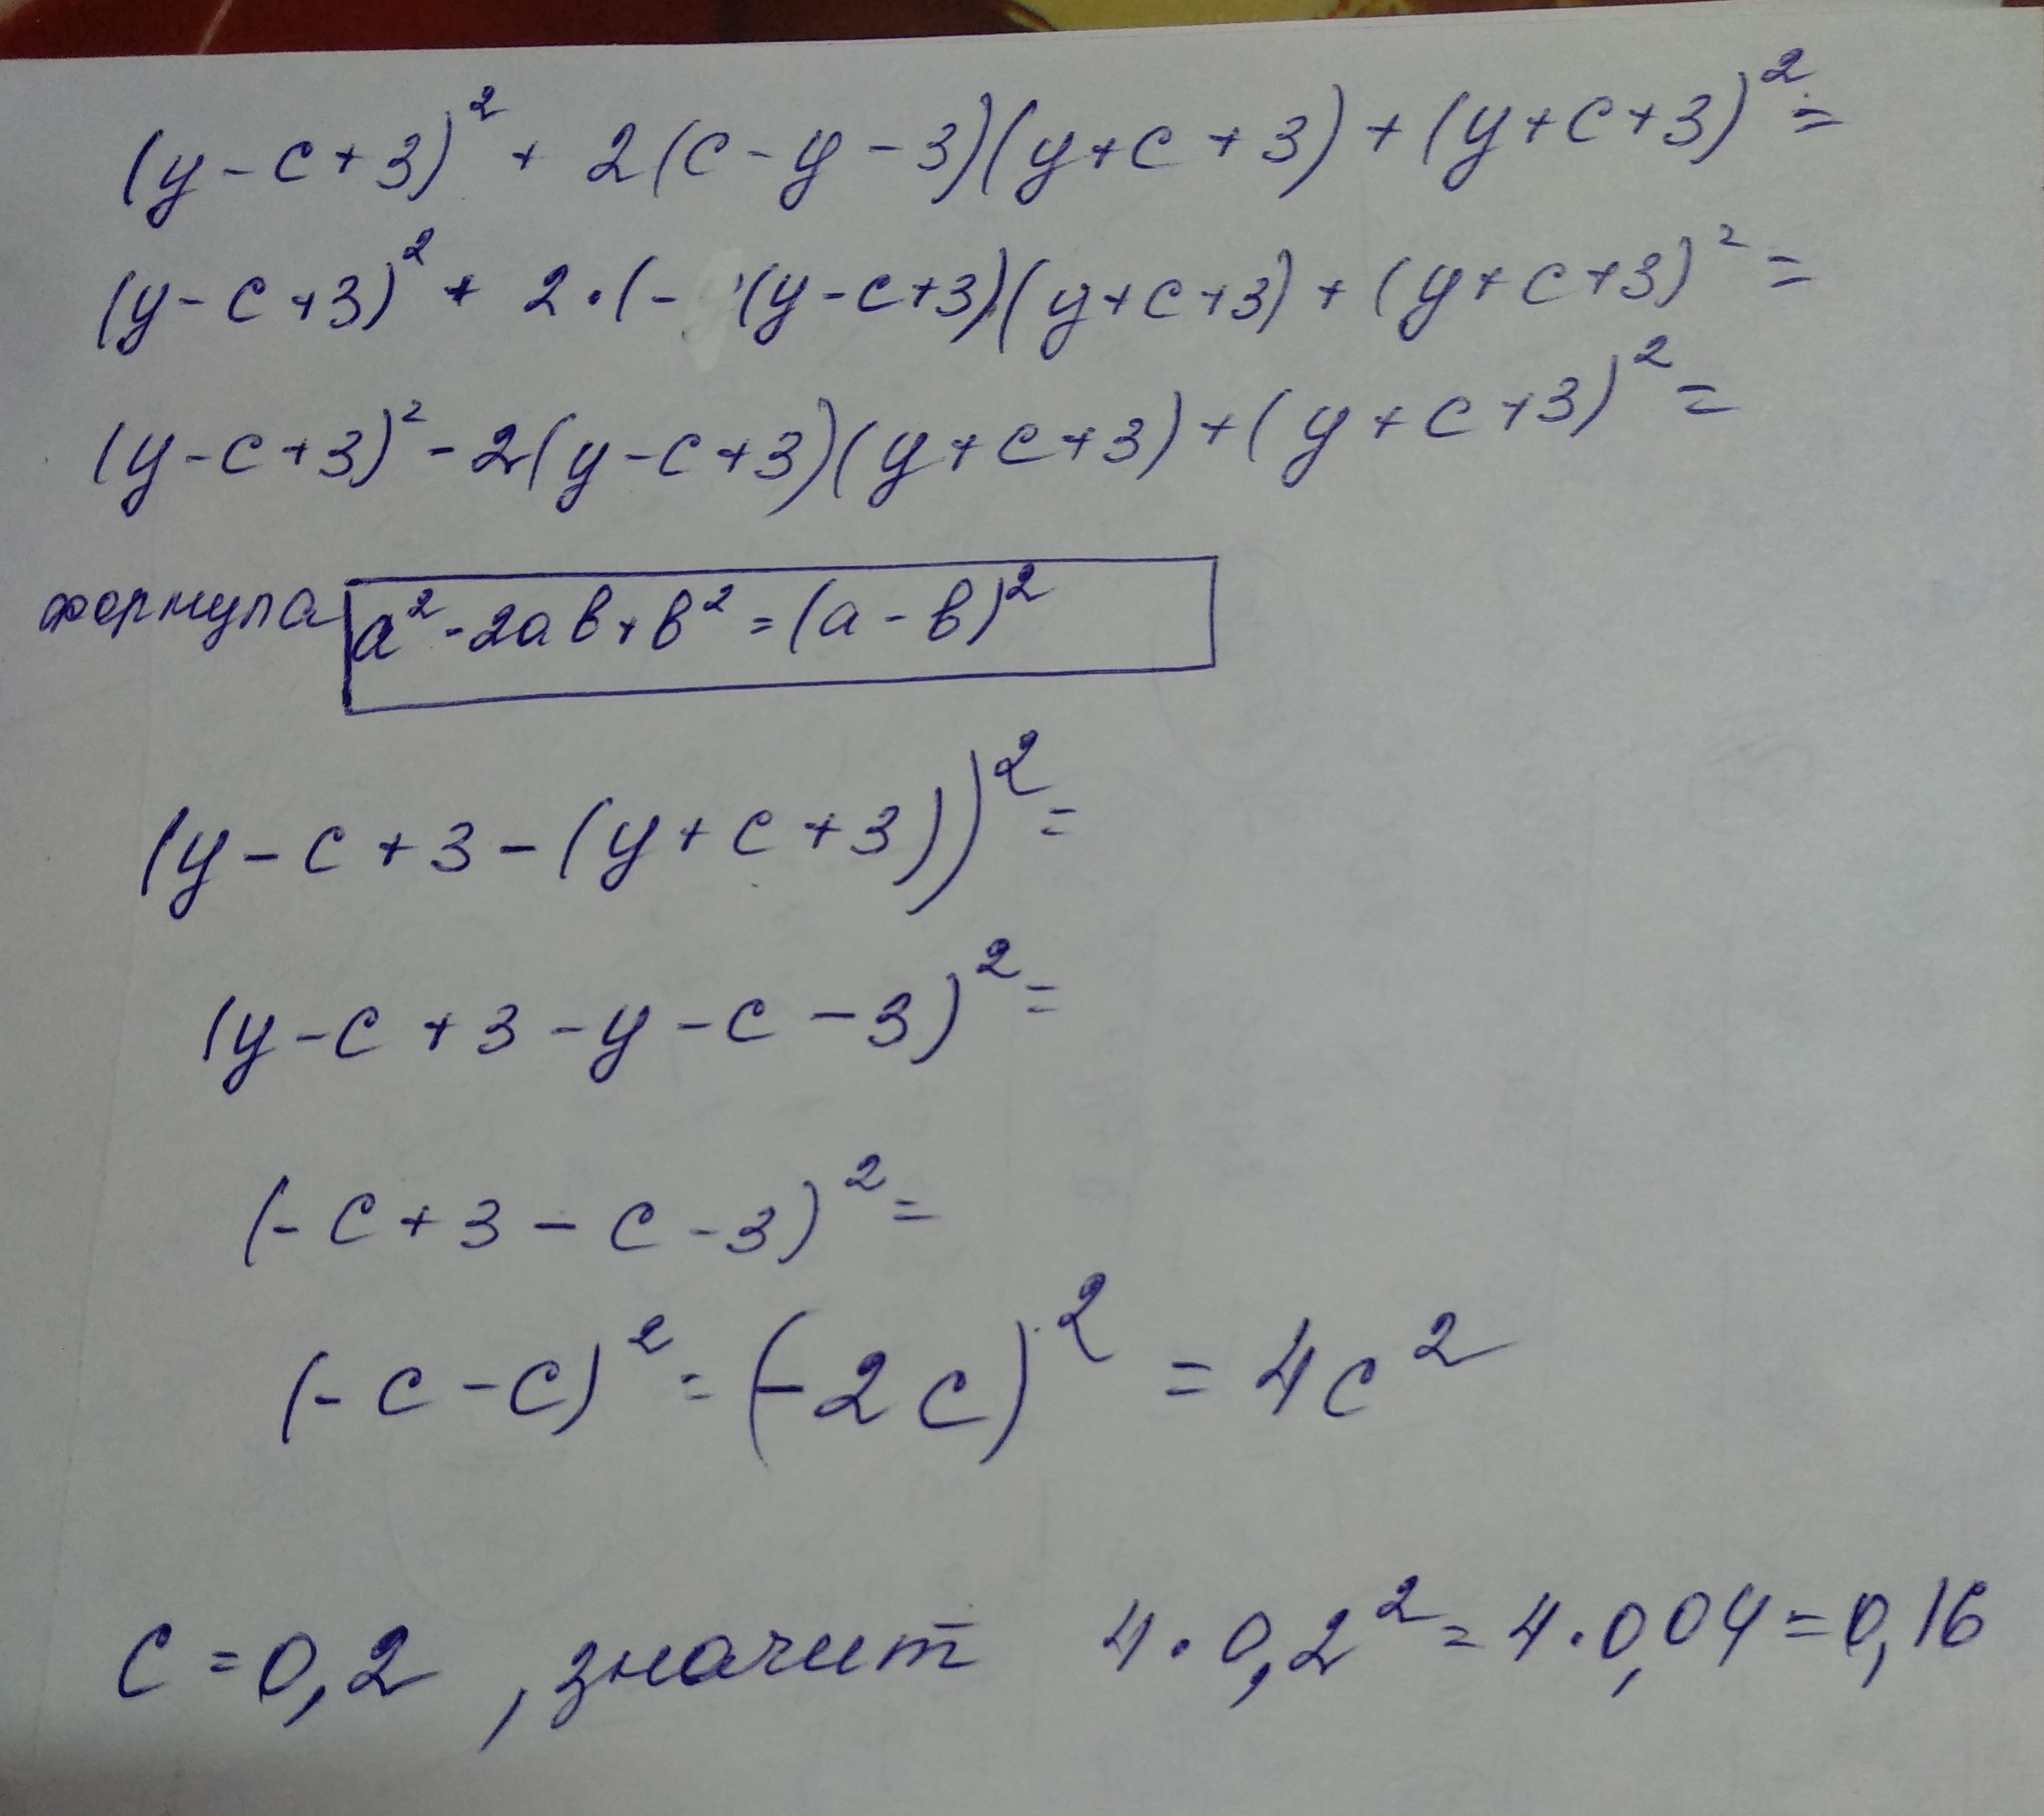 (y-c+3)² + 2(c-y-3)(y+c+3)+(y+c+3)²=
(y-c+3)² + 2·(-(y-c+3)(y+c+3)+(y+c+3)²=
(y-c+3)²-2(y-c+3)(y+c+3)+(y+c+3)²=
формула a²-2ab+b²=(a-b)²
(y-c+3-(y+c+3))²=
(y-c+3-y-c-3)²=
(-c+3-c-3)²=
(-c-c)²=(-2c)²=4c²
c=0,2 , значит 4·0,2²=4·0,04=0,16